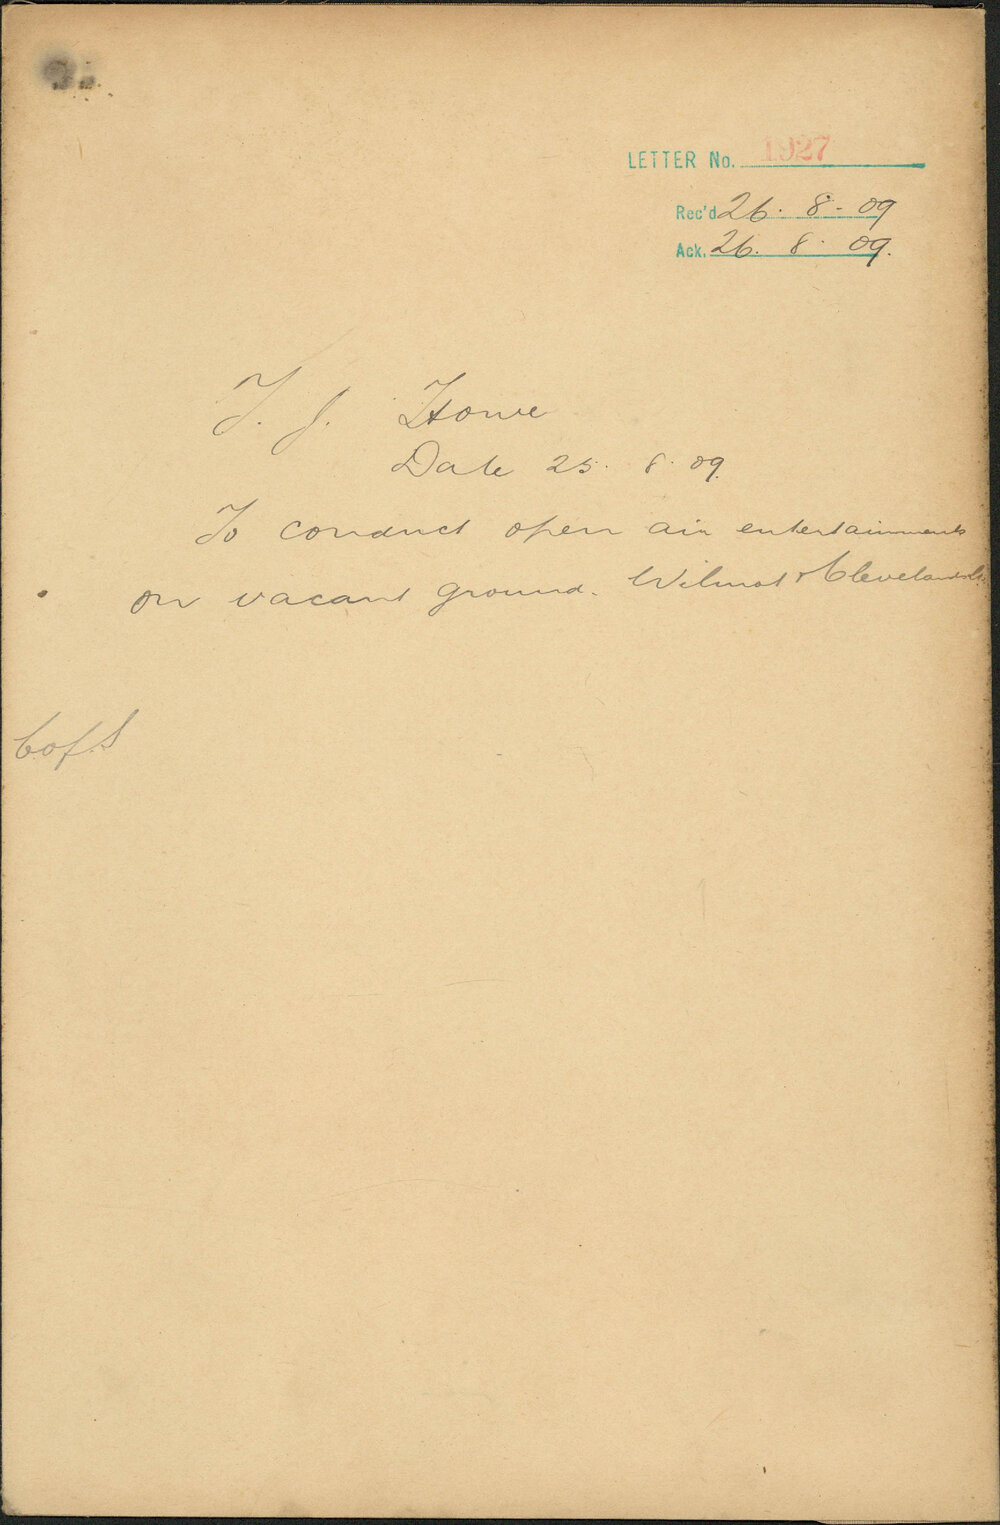 LETTER No. 1927
Rec'd 26. 8. 09
Ack. 26. 8. 09.
T. J. Howe
Date 25. 8. 09.
To conduct open air entertainments
on vacant ground. Wilmot & Cleveland Sts.
C of S